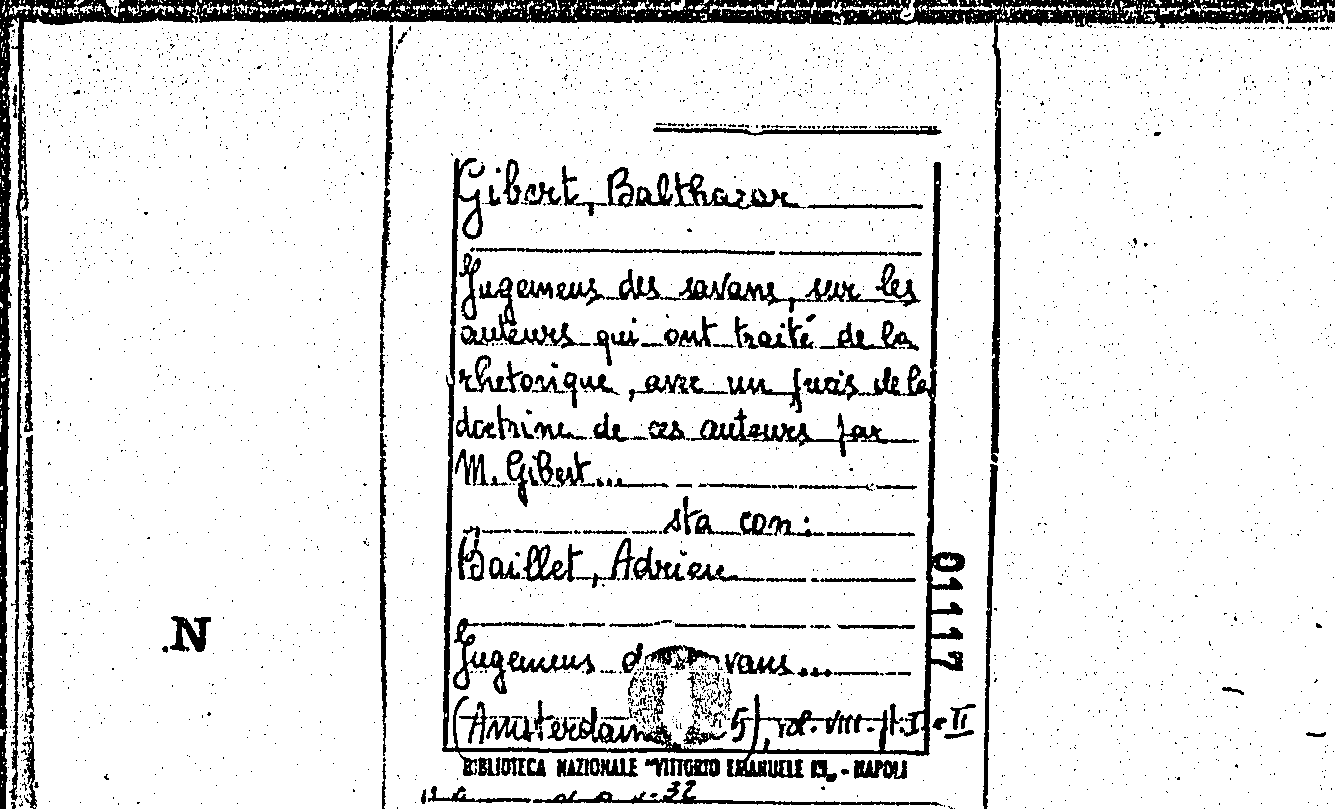 Gibert, Balthazar
Jugemens des savans, sur les
auteurs qui ont traité de la
rhetorique, avec un precis de la
doctrine de ces auteurs par
M. Gibert...
sta con:
Baillet, Adrien
Jugemens vans...
(Amsterdam 5), vol. VIII. pt. I. e II
BIBLIOTECA NAZIONALE "VITTORIO EMANUELE III„ - NAPOLI
32
01117
N